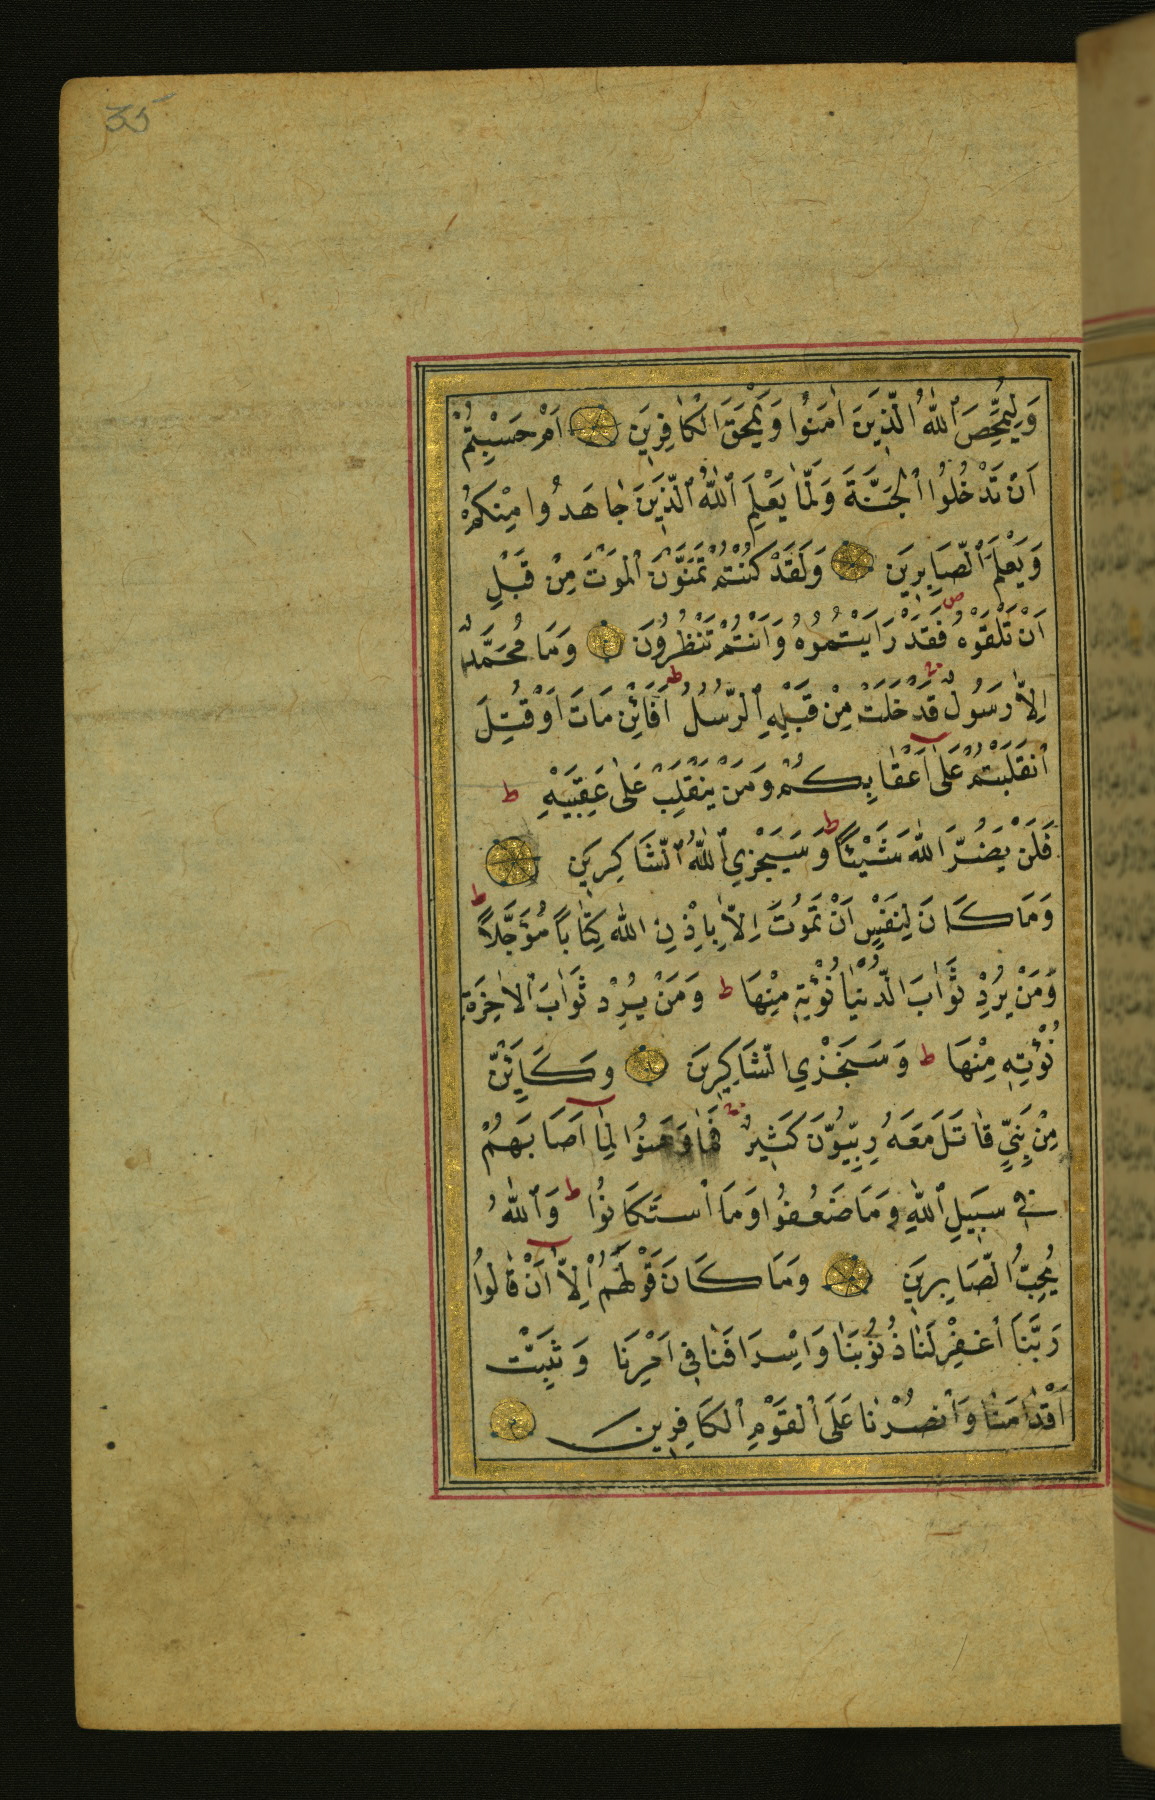 35
وَلِيُمَحِّصَ ٱللّٰهُ الَّذِينَ اٰمَنُوا وَيَمْحَقَ الْكَافِرِينَ اَمْ حَسِبْتُمْ
اَنْ تَدْخُلُوا ٱلْجَنَّةَ وَلَمَّا يَعْلَمِ ٱللّٰهُ ٱلَّذِينَ جَاهَدُوا مِنْكُمْ
وَيَعْلَمَ ٱلصَّابِرِينَ وَلَقَدْ كُنْتُمْ تَمَنَّوْنَ ٱلْمَوْتَ مِنْ قَبْلِ
اَنْ تَلْقَوْهُ ص فَقَدْ رَاَيْتُمُوهُ وَاَنْتُمْ تَنْظُرُونَ وَمَا مُحَمَّدٌ
اِلَّا رَسُولٌ قَدْ خَلَتْ مِنْ قَبْلِهِ ٱلرُّسُلُ ط اَفَائِنْ مَاتَ اَوْ قُتِلَ
ٱنْقَلَبْتُمْ عَلٰى اَعْقَابِكُمْ وَمَنْ يَنْقَلِبْ عَلٰى عَقِبَيْهِ ط
فَلَنْ يَضُرَّ اللّٰهَ شَيْئًا ط وَسَيَجْزِي ٱللّٰهُ ٱلشَّاكِرِينَ
وَمَا كَانَ لِنَفْسٍ اَنْ تَمُوتَ اِلَّا بِاِذْنِ اللّٰهِ كِتَابًا مُؤَجَّلًا ط
وَمَنْ يُرِدْ ثَوَابَ الدُّنْيَا نُؤْتِهٖ مِنْهَا ط وَمَنْ يُرِدْ ثَوَابَ ٱلْاٰخِرَةِ
نُؤْتِهٖ مِنْهَا ط وَسَنَجْزِي الشَّاكِرِينَ وَكَاَيِّنْ
مِنْ نَبِيٍّ قَاتَلَ مَعَهُ رِبِّيُّونَ كَثِيرٌ فَمَا وَهَنُوا لِمَا اَصَابَهُمْ
فِي سَبِيلِ ٱللّٰهِ وَمَا ضَعُفُوا وَمَا ٱسْتَكَانُوا ط وَٱللّٰهُ
يُحِبُّ الصَّابِرِينَ وَمَا كَانَ قَوْلَهُمْ اِلَّا اَنْ قَالُوا
رَبَّنَا ٱغْفِرْلَنَا ذُنُوبَنَا وَاِسْرَافَنَا فِي اَمْرِنَا وَثَبِّتْ
اَقْدَامَنَا وَٱنْصُرْنَا عَلَى ٱلْقَوْمِ ٱلْكَافِرِينَ